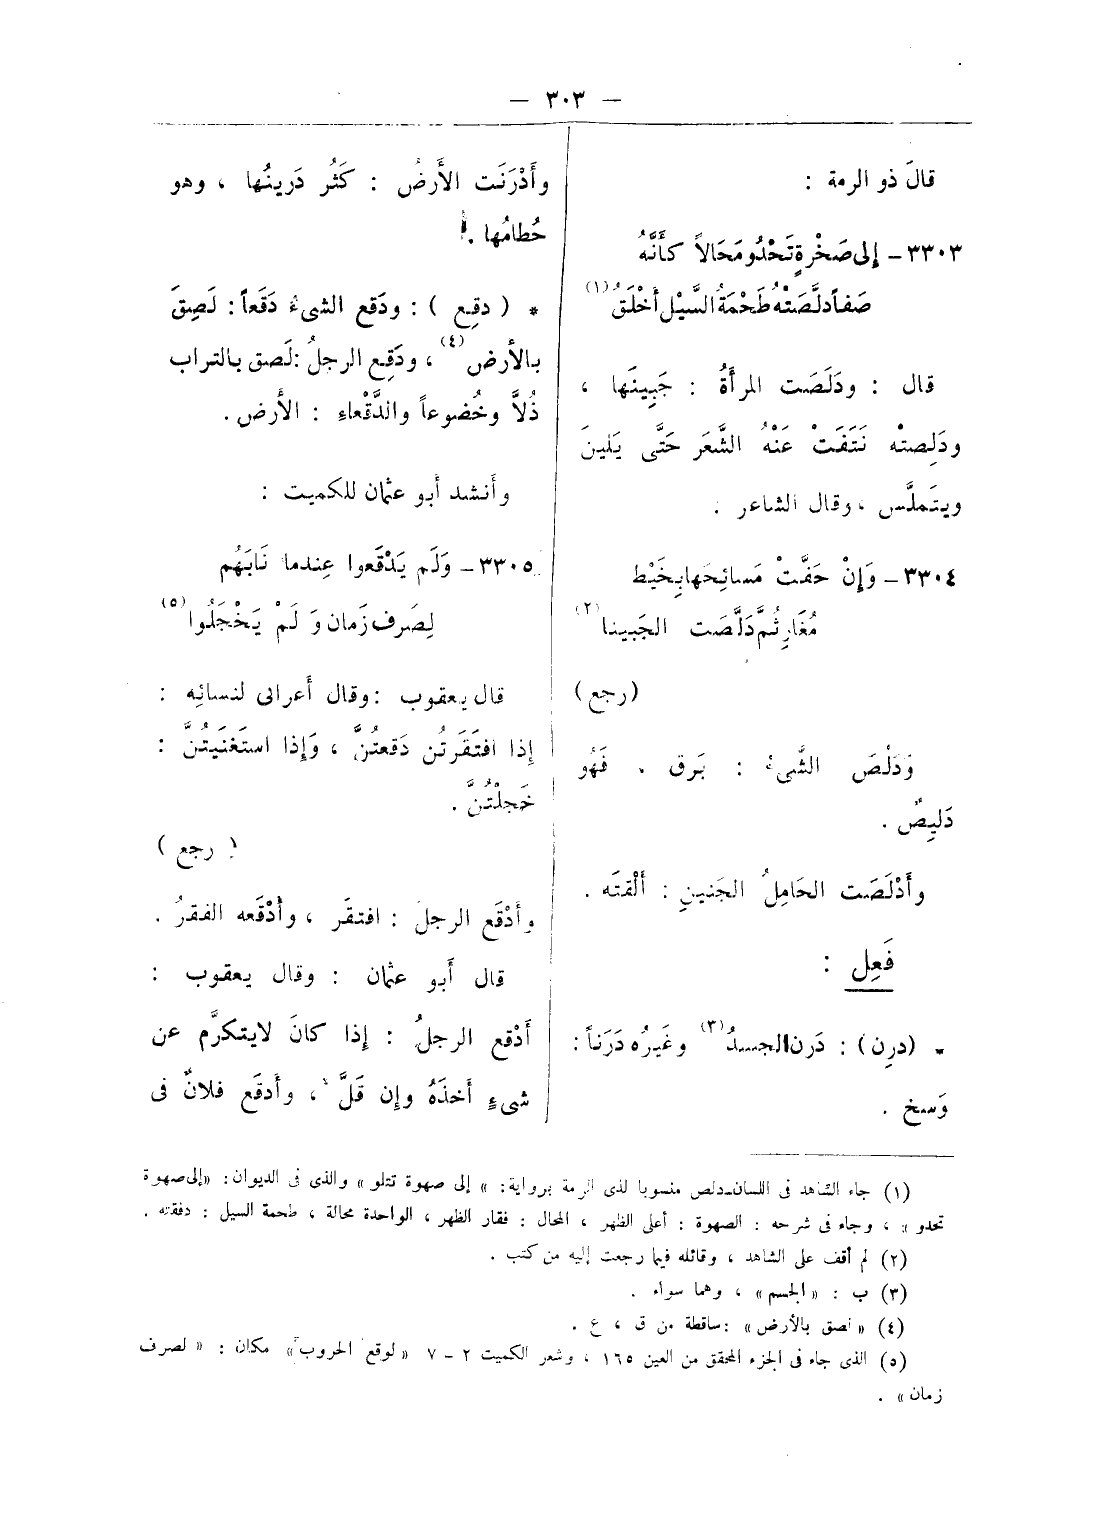 — ٣٠٣ —
قالَ ذو الرمة :
٣٣٠٣ – إلى صَخْرةٍ تَحْدُو مَحَالاً كأَنَّهُ
صَفاً دلَّصَتْهُ طَحْمَةُ السَّيْلِ أَخْلَقُ (١)
قال : ودَلَصَت المرأَةُ : جَبِينَها ،
ودَلِصتْه نَتَفَتْ عَنْهُ الشَّعَر حَتَّى يَلينَ
ويتَملَّس ، وقال الشاعر .
٣٣٠٤ – وَإِنْ حَفَّتْ مَسائِحَها بِخَيْط
مُغَارِ ثُمَّ دَلَّصَت الجَبينا (٢)
(رجع)
وَدَلُصَ الشَّىءُ : بَرق . فَهُو
دَلِيصٌ .
وأَدْلَصَت الحَامِلُ الجَنينِ : أَلْقتَه .
فَعِل :
* (درِن) : دَرن الجسدُ (٣) وغَيرُه دَرَناً :
وَسخ .
وأَدْرَنَت الأَرضُ : كَثُر دَرينُها ، وهو
حُطامُها .
* ( دقِع ) : ودَقع الشىءُ دَقَعاً : لَصِقَ
بالأَرض (٤) ، ودَقِع الرجلُ : لَصق بالتراب
ذُلاًّ وخُضوعاً والدَّقْعاءِ : الأَرض .
وأَنشد أَبو عثمان للكميت :
٣٣٠٥ – وَلَم يَدْقَعوا عِندما نَابَهُم
لِصَرف زَمان وَ لَمْ يَخْجَلُوا (٥)
قال يعقوب : وقال أَعرابى لنسائِه :
إذا افتَقَرتُن دَقعتُنَّ ، وَإِذا استَغنَيتُنَّ :
خَجلْتُنَّ .
( رجع )
وأَدْقَع الرجلُ : افتقَر ، وأَدْقَعه الفقرُ .
قال أَبو عثمان : وقال يعقوب :
أَدْقع الرجلُ : إذا كانَ لايتكرَّم عن
شىءٍ أَخذَهُ وإن قَلَّ ، وأَدقَع فلانٌ فى
(١) جاء الشاهد فى اللسان–دلص منسوبا لذى الرمة برواية : » إلى صهوة تتلو » والذى فى الديوان : «إلى صهوة
تحدو » ، وجاء فى شرحه : الصهوة : أعلى الظهر ، المحال : فقار الظهر ، الواحدة محالة ، طحمة السيل : دفقته .
(٢) لم أقف على الشاهد ، وقائله فيما رجعت إليه من كتب .
(٣) ب : «الجسم» ، وهما سواء .
(٤) « لصق بالأرض» : ساقطة من ق ، ع .
(٥) الذى جاء فى الجزء المحقق من العين ١٦٥ ، وشعر الكميت ٢ – ٧ «لوقع الحروب» مكان : « لصرف
زمان» .